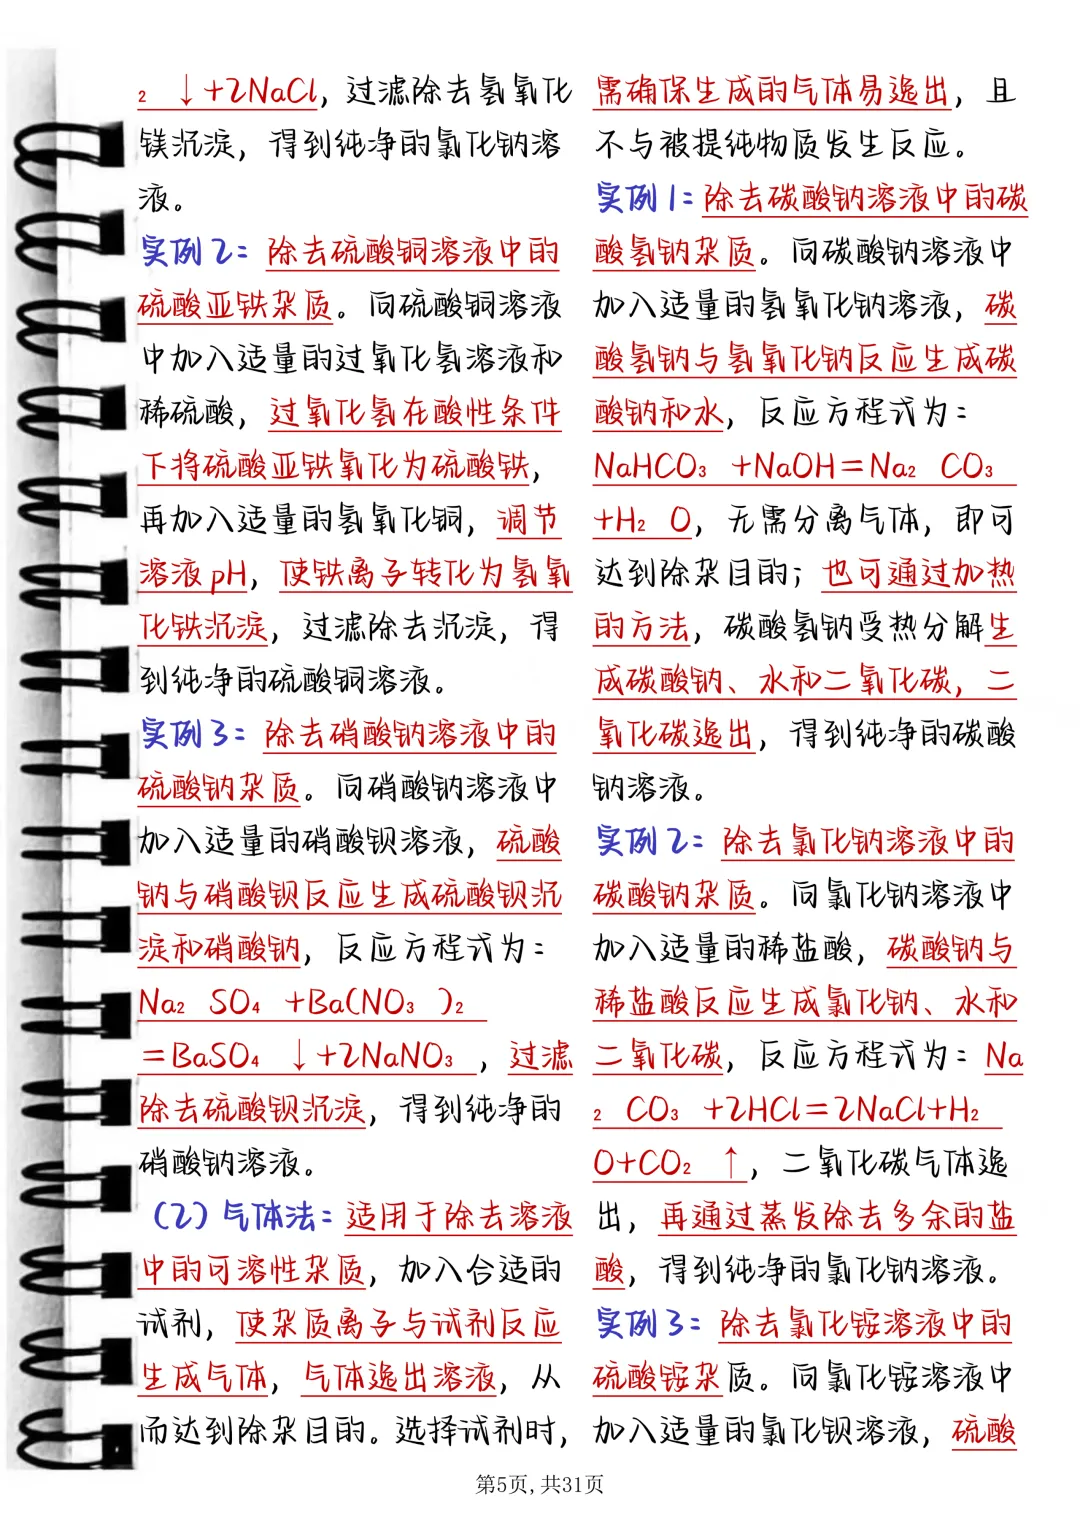 ₂ ↓+2NaCl，过滤除去氢氧化
镁沉淀，得到纯净的氯化钠溶
液。
实例2：除去硫酸铜溶液中的
硫酸亚铁杂质。向硫酸铜溶液
中加入适量的过氧化氢溶液和
稀硫酸，过氧化氢在酸性条件
下将硫酸亚铁氧化为硫酸铁，
再加入适量的氢氧化铜，调节
溶液pH，使铁离子转化为氢氧
化铁沉淀，过滤除去沉淀，得
到纯净的硫酸铜溶液。
实例3：除去硝酸钠溶液中的
硫酸钠杂质。向硝酸钠溶液中
加入适量的硝酸钡溶液，硫酸
钠与硝酸钡反应生成硫酸钡沉
淀和硝酸钠，反应方程式为：
Na₂ SO₄ +Ba(NO₃ )₂
=BaSO₄ ↓+2NaNO₃ ，过滤
除去硫酸钡沉淀，得到纯净的
硝酸钠溶液。
（2）气体法：适用于除去溶液
中的可溶性杂质，加入合适的
试剂，使杂质离子与试剂反应
生成气体，气体逸出溶液，从
而达到除杂目的。选择试剂时，
需确保生成的气体易逸出，且
不与被提纯物质发生反应。
实例1：除去碳酸钠溶液中的碳
酸氢钠杂质。向碳酸钠溶液中
加入适量的氢氧化钠溶液，碳
酸氢钠与氢氧化钠反应生成碳
酸钠和水，反应方程式为：
NaHCO₃ +NaOH=Na₂ CO₃
+H₂ O，无需分离气体，即可
达到除杂目的；也可通过加热
的方法，碳酸氢钠受热分解生
成碳酸钠、水和二氧化碳，二
氧化碳逸出，得到纯净的碳酸
钠溶液。
实例2：除去氯化钠溶液中的
碳酸钠杂质。向氯化钠溶液中
加入适量的稀盐酸，碳酸钠与
稀盐酸反应生成氯化钠、水和
二氧化碳，反应方程式为：Na
₂ CO₃ +2HCl=2NaCl+H₂
O+CO₂ ↑，二氧化碳气体逸
出，再通过蒸发除去多余的盐
酸，得到纯净的氯化钠溶液。
实例3：除去氯化铵溶液中的
硫酸铵杂质。向氯化铵溶液中
加入适量的氯化钡溶液，硫酸
第5页,共31页